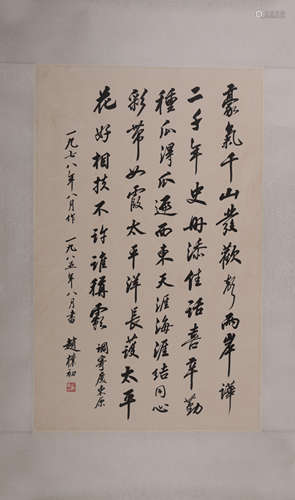 豪氣千山發歡聲兩岸譁
二千年史冊添佳話喜辛勤
種瓜得瓜遍西東天涯海涯結同心
彩帶如霞太平洋長護太平
花好相扶不許誰稱霸 調寄慶東原
一九七八年八月作 一九八五年八月書 趙樸初